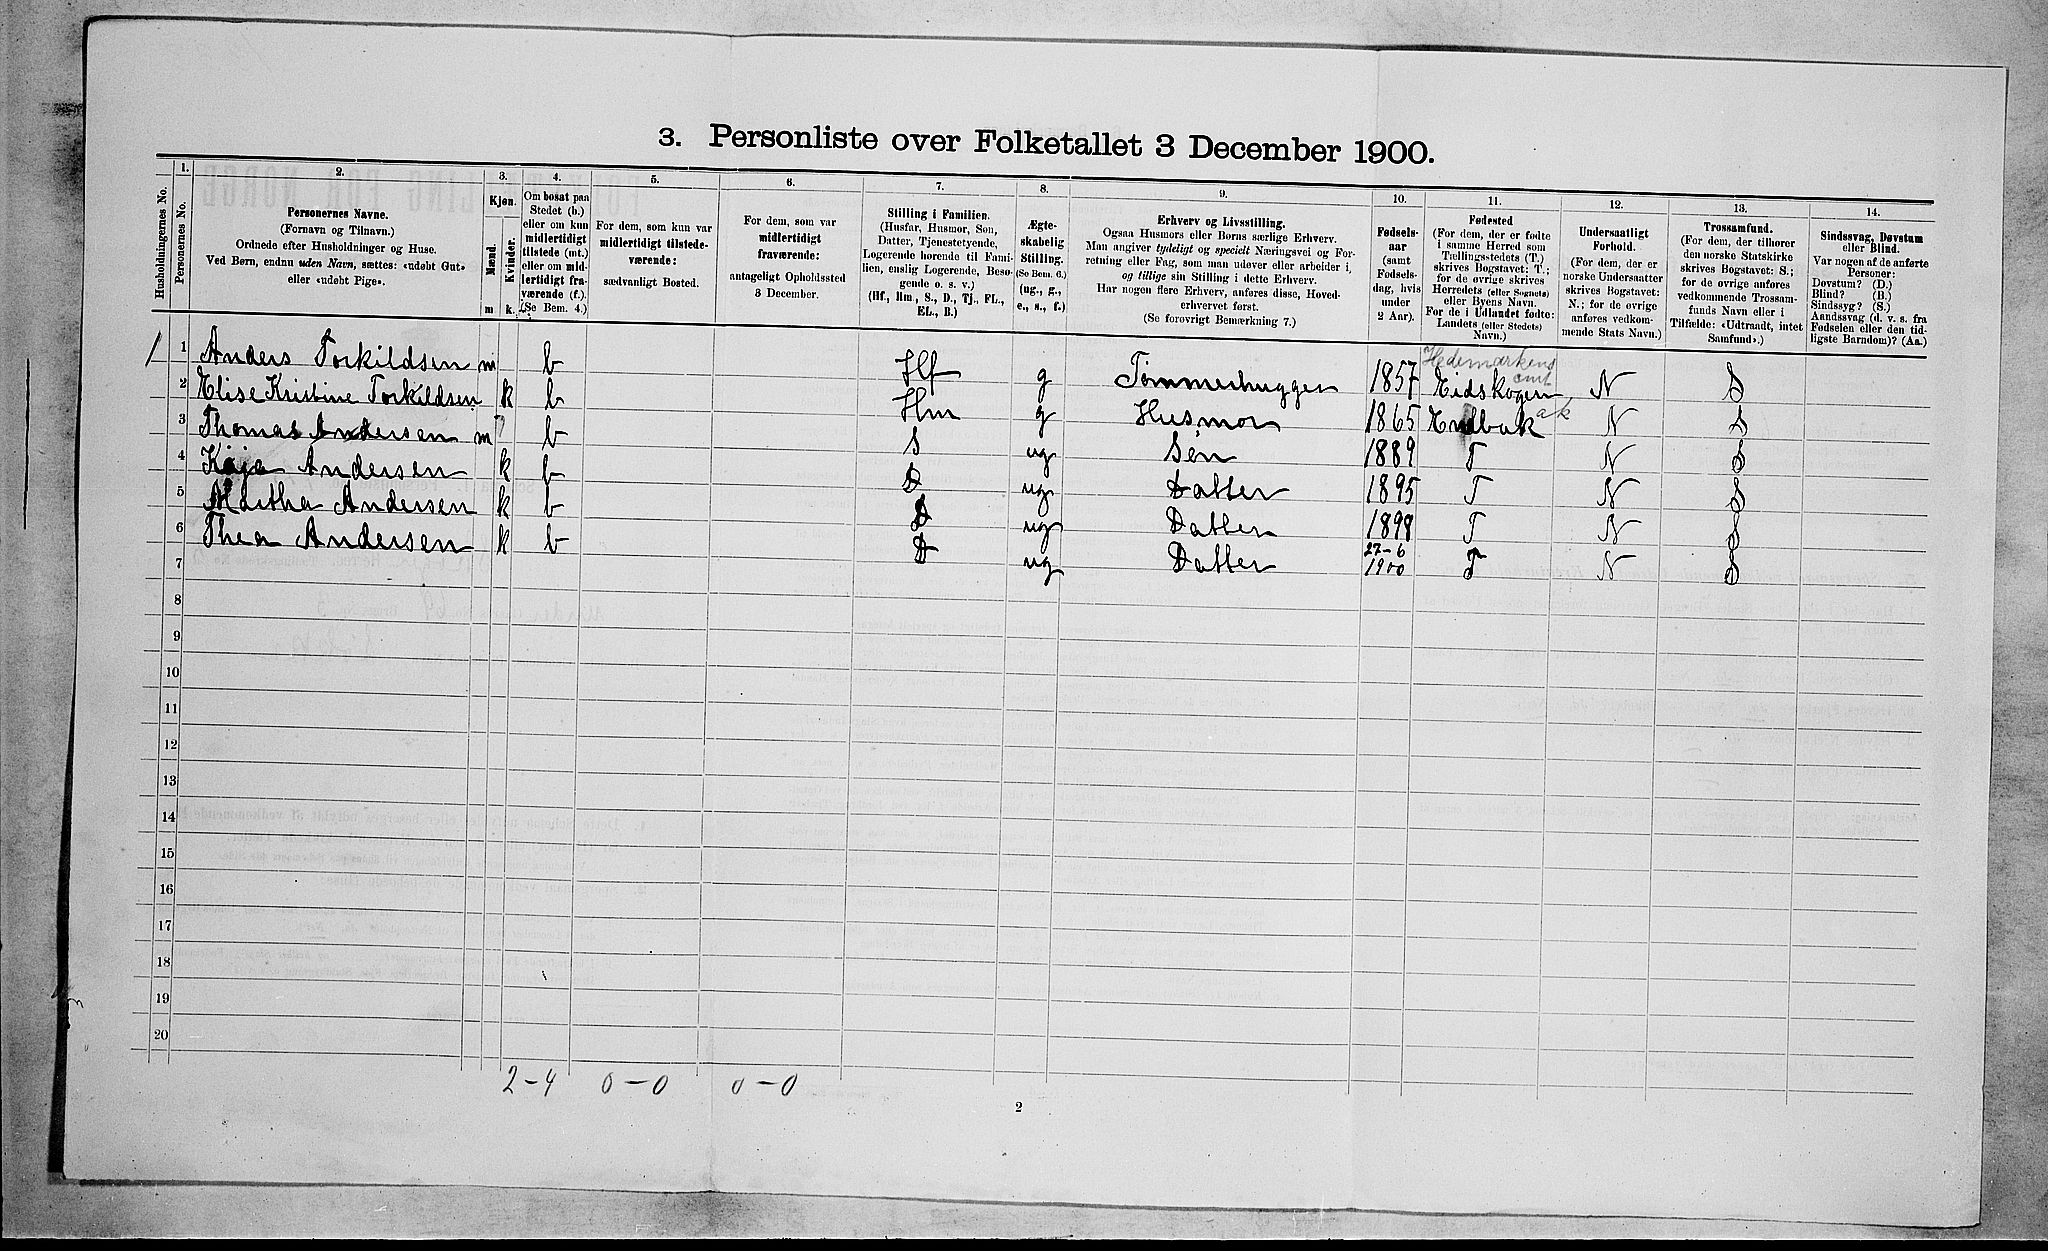 3. Personliste over Folketallet 3 December 1900.
Husholdningernes No.
1.
Personernes No.
2.
Personernes Navne.
(Fornavn og Tilnavn.)
Ordnede efter Husholdninger og Huse.
Ved Børn, endnu uden Navn, sættes: «udøbt Gut»
eller «udøbt Pige».
3.
Kjøn.
Mænd.
Kvinder.
m k.
4.
Om bosat paa
Stedet (b.)
eller om kun
midlertidigt
tilstede (mt.)
eller om mid-
lertidigt fra-
værende (f.).
(Se Bem. 4.)
5.
For dem, som kun var
midlertidigt tilstede-
værende:
sædvanligt Bosted.
6.
For dem, som var
midlertidigt
fraværende:
antageligt Opholdssted
3 December.
7.
Stilling i Familien.
(Husfar, Husmor, Søn,
Datter, Tjenestetyende,
Logerende hørende til Fami-
lien, enslig Logerende, Besø-
gende o. s. v.)
(Hf., Hm., S., D., Tj., FL.,
EL., B.)
8.
Ægte-
skabelig
Stilling.
(Se Bem. 6.)
(ug., g.,
e., s., f.)
9.
Erhverv og Livsstilling.
Ogsaa Husmors eller Børns særlige Erhverv.
Man angiver tydeligt og specielt Næringsvei og For-
retning eller Fag, som man udøver eller arbeider i,
og tillige sin Stilling i dette Erhverv.
Har nogen flere Erhverv, anføres disse, Hoved-
erhvervet først.
(Se forøvrigt Bemærkning 7.)
10.
Fødsels-
aar
(samt
Fødsels-
dag, hvis
under
2 Aar).
11.
Fødested
(For dem, der er fødte
i samme Herred som
Tællingsstedets (T.)
skrives Bogstavet: T.;
for de øvrige skrives
Herredets (eller Sognets)
eller Byens Navn.
For de i Udlandet fødte:
Landets (eller Stedets)
Navn.)
12.
Undersaatligt
Forhold.
(For dem, der er
norske Undersaatter
skrives Bogstavet:
N.; for de øvrige
anføres vedkom-
mende Stats Navn.)
13.
Trossamfund.
(For dem, der tilhører
den norske Statskirke
skrives Bogstavet: S.;
for de øvrige anføres
vedkommende Trossam-
funds Navn eller i
Tilfælde: «Udtraadt, intet
Samfund».)
14.
Sindssvag, Døvstum
eller Blind.
Var nogen af de anførte
Personer:
Døvstum? (D.)
Blind? (B.)
Sindssyg? (S.)
Aandssvag (d. v. s. fra
Fødselen eller den tid-
ligste Barndom)? (Aa.)
Hedemarkens
amt
1 1 Anders Torkildsen m b Hf g Tømmerhugger 1857 Eidskogen N S
2 Elise Kristine Torkildsen k b Hm g Husmor 1865 Enebak ak N S
3 Thomas Andersen m b S ug Søn 1889 T N S
4 Kaja Andersen k b D ug Datter 1895 T N S
5 Martha Andersen k b D ug Datter 1898 T N S
6 Thea Andersen k b D ug Datter 27-6 1900 T N S
7
8
9
10
11
12
13
14
15
16
17
18
19
20
2-4 0-0 0-0
2